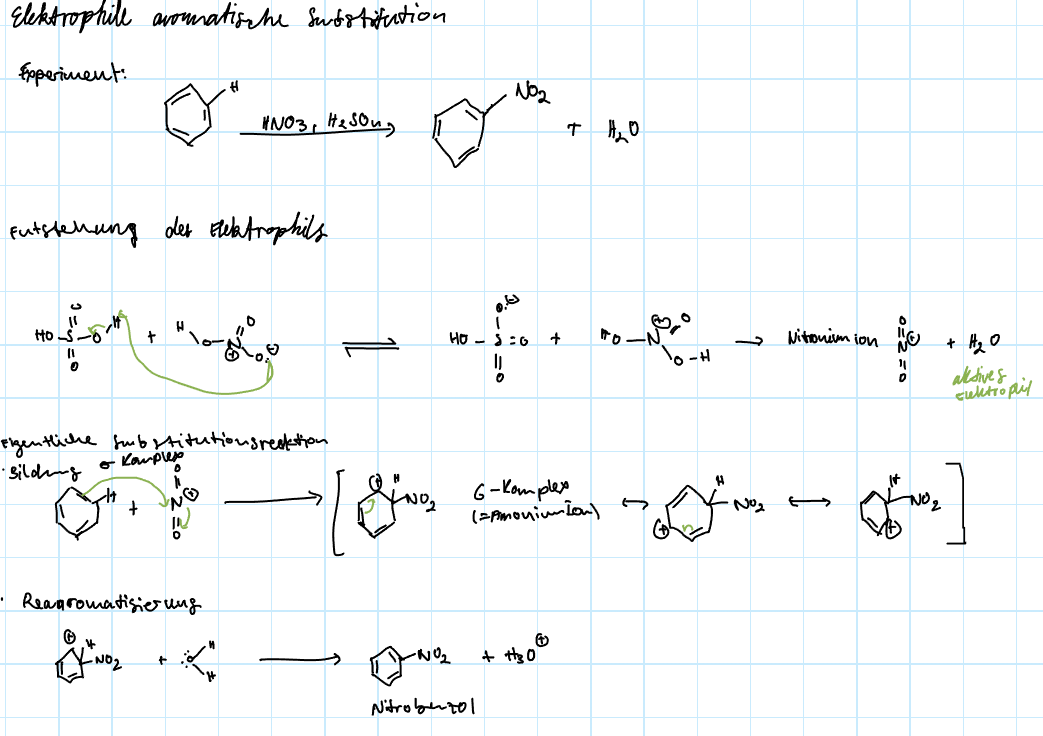 Elektrophile aromatische Substitution
Experiment:
H
NO2
HNO3, H2SO4
+ H2O
Entstehung des Elektrophils
O
HO-S-O H + H O-N O O
O
HO-S=O + HO-N O O-H → Nitroniumion O N O + H2O
aktives
Elektrophil
Eigentliche Substitutionsreaktion
· Bildung σ-Komplex
H + O N O
H NO2 σ-Komplex
(=Amoniumion)
H NO2
H NO2
· Rearomatisierung
H NO2 + O H H → NO2 + H3O+
Nitrobenzol